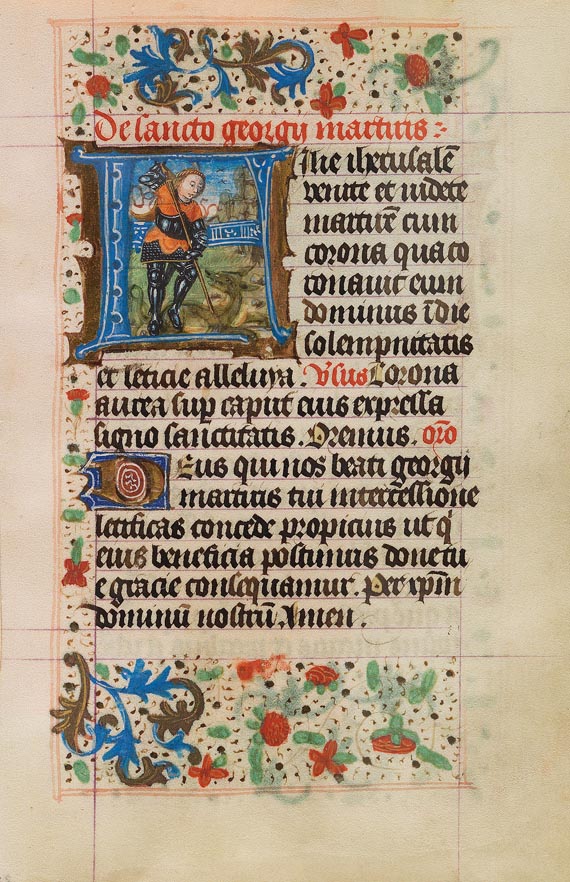 De sancto georgij martiris :
FIlie iherusalē
venite et videte
martirē cum
corona qua co
ronauit eum
dominus ī die
solempnitatis
et leticie alleluya . Vsus Corona
aurea sup caput eius expressa
signo sanctitatis . Oremus . orō
DEus qui nos beati georgij
martiris tui intercessione
letificas concede propicius ut q̄
eius beneficia poscimus dono tu
e gracie consequamur . Per xp̄m
dominū nostrū Amen .